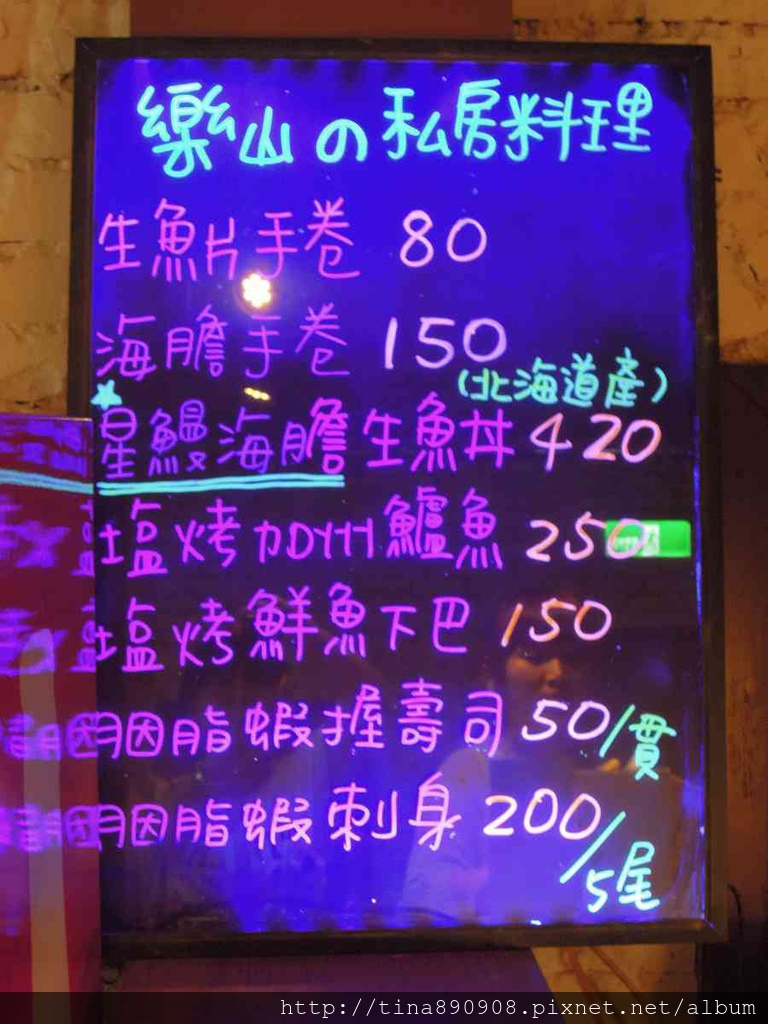 樂山の私房料理
生魚片手卷 80
海膽手卷 150
(北海道產)
星鰻海膽生魚丼 420
塩烤加州鱸魚 250
塩烤鮮魚下巴 150
胭脂蝦握壽司 50/貫
胭脂蝦刺身 200/5尾
http://tina890908.pixnet.net/album